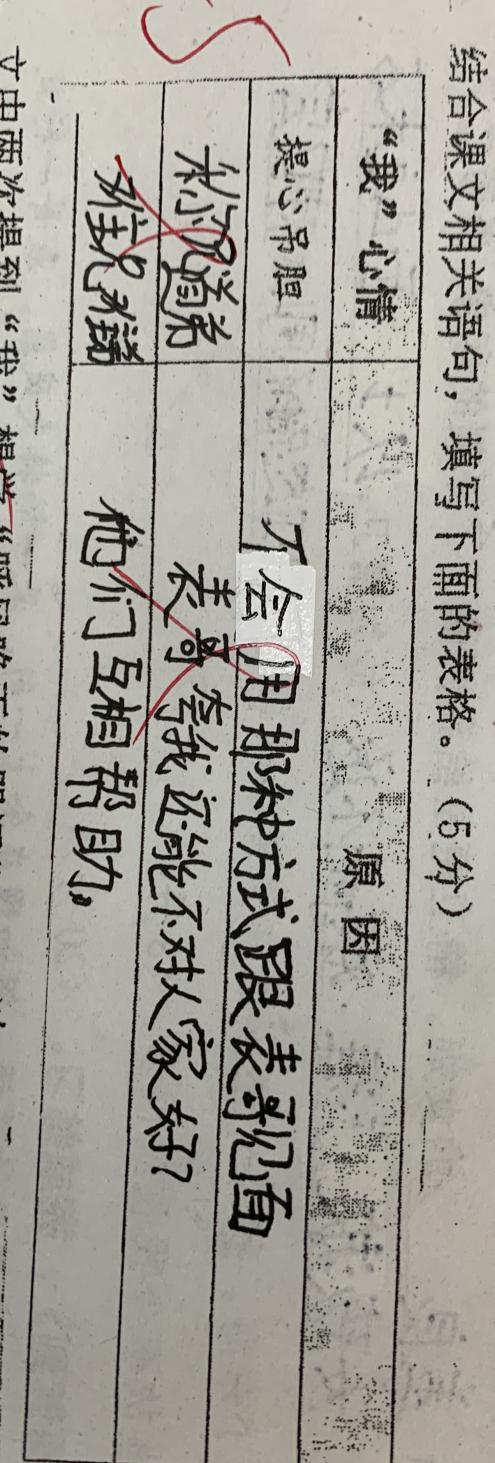 结合课文相关语句，填写下面的表格。（5分）
“我”心情 原因
提心吊胆 不会用那种方式跟表哥见面
表哥夸我还能不对人家好？
他们互相帮助。
文中两次提到“我”想学
5